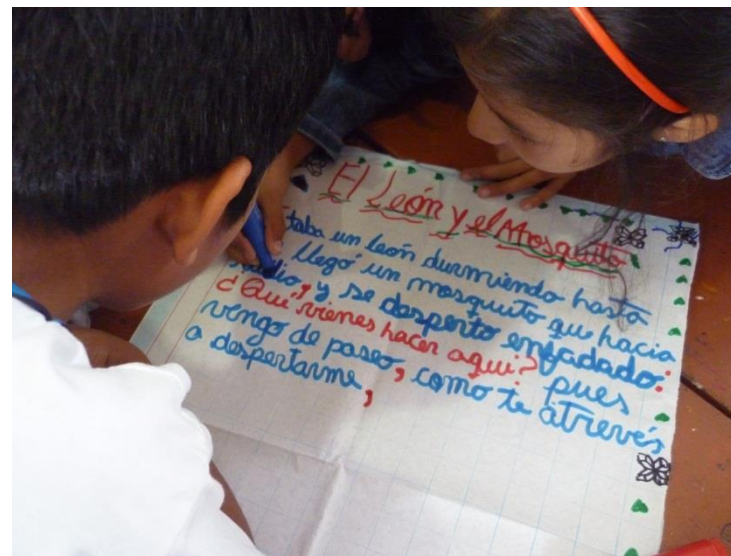 El León y el Mosquito
taba un león durmiendo hasta
llegó un mosquito qu hacia
udio, y se desperto enfadado:
¿Qué vienes hacer aqui? pues
vengo de paseo, como te atrevés
a despertarme,